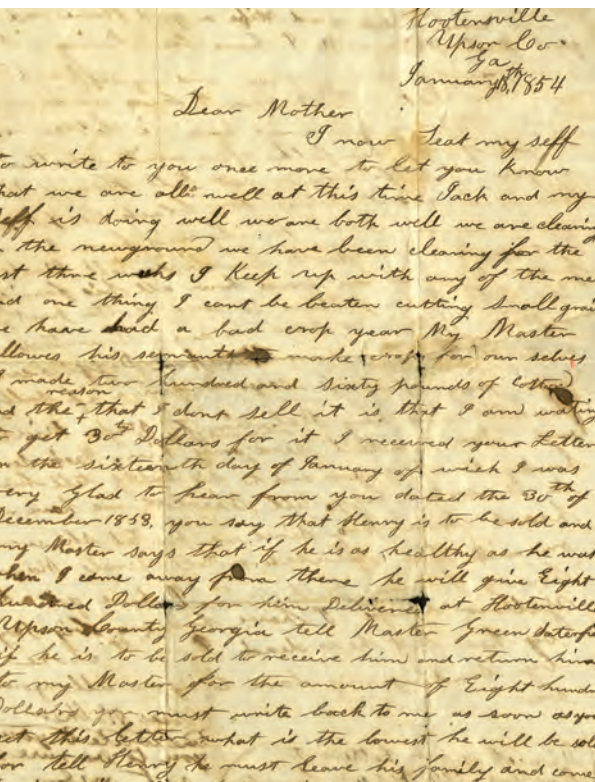 Hootensville
Upson Co
Ga
January 18th 1854
Dear Mother
I now Seat my seff
to write to you once more to let you know
that we are all well at this time Jack and my
seff is doing well we are both well we are clearing
the newground we have been clearing for the
three weeks I Keep up with any of the me
one thing I cant be beaten cutting Small grai
we have had a bad crop year My Master
allowes his servants to make crops for our selves
I made two hundred and sixty pounds of Cotton
the reason that I dont sell it is that I am waiting
get 30ty Dollars for it I received your Letter
on the sixteenth day of January of wich I was
very Glad to hear from you dated the 30th of
December 1853, you say that Henry is to be sold and
my Master says that if he is as healthy as he was
when I come away from there he will give Eight
hundred Dollars for him Delivered at Hootenvill
Upson County Georgia tell Master Green
if he is to be sold to receive him and return him
to my Master for the amount of Eight hund
Dollars you must write back to me as soon as you
get this letter what is the lowest he will be sol
for tell Henry he must leave his family and come